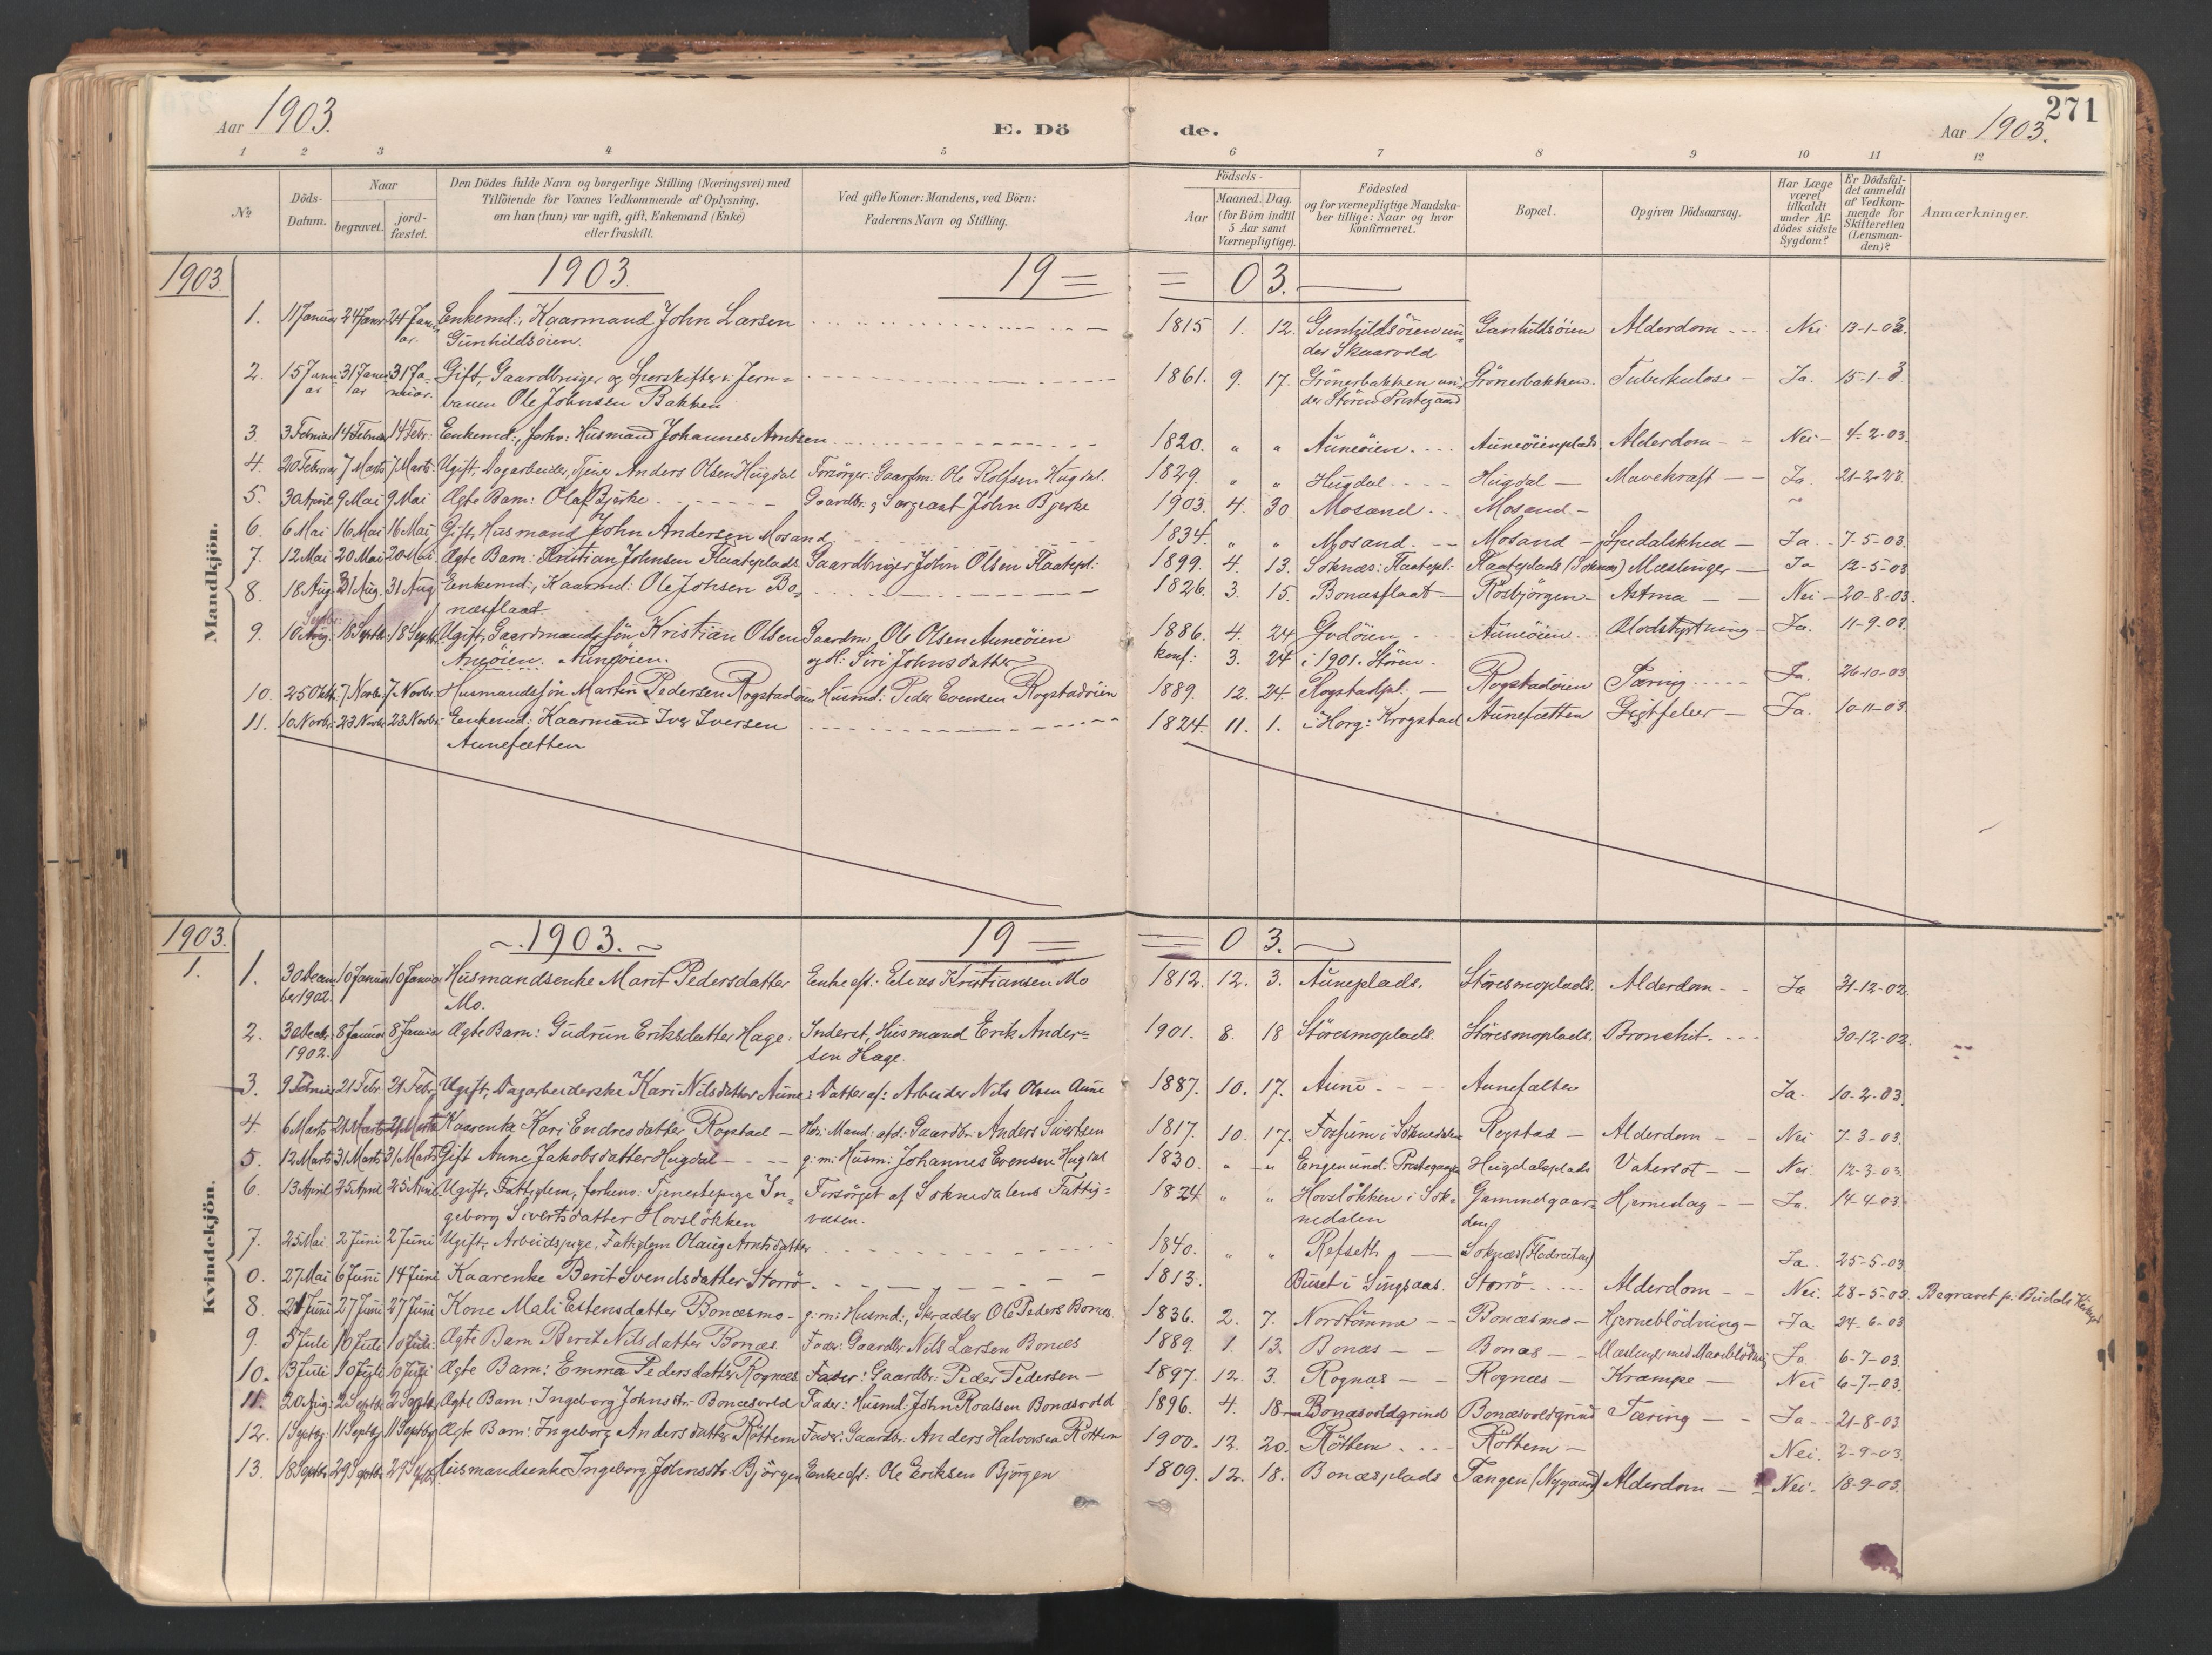 271
Aar 1903.
E. Dö
de.
Aar 1903.
1 2 3 4 5 6 7 8 9 10 11 12
No
Döds-
Datum.
Naar
begravet.
jord-
fæstet.
Den Dödes fulde Navn og borgerlige Stilling (Næringsvei) med
Tilföiende for Voxnes Vedkommende af Oplysning,
om han (hun) var ugift, gift, Enkemand (Enke)
eller fraskilt.
Ved gifte Koner: Mandens, ved Börn:
Faderens Navn og Stilling.
Födsels-
Aar
Maaned. Dag.
(for Börn indtil
5 Aar samt
Værnepligtige).
Födested
og for værnepligtige Mandska-
ber tillige: Naar og hvor
konfirmeret.
Bopæl.
Opgiven Dödsaarsag.
Har Læge
været
tilkaldt
under Af-
dödes sidste
Sygdom?
Er Dödsfal-
det anmeldt
af Vedkom-
mende for
Skifteretten
(Lensman-
den)?
Anmærkninger.
Mandkjön.
1903. 1903. 19 = = 03.
1. 11 Januar 24 Januar 24 Janu- Enkemd:, Kaarmand John Larsen 1815 1. 12. Gunhildsöien un- Gunhildsöien Alderdom Nei 13-1-03.
ar. Gunhildsöien. der Skaarvold
2. 15 Janu- 31 Janu- 31 Ja- Gift, Gaardbruger og Sporskifter v. Jern- 1861. 9. 17. Grönerbakken un- Grönerbakken. Tuberkulose - Ja. 15-1-3.
ar ar nuar. banen Ole Johnsen Bakken der Stören Prestegaard
3. 3 Februar 14 Februar 14 Febr: Enkemd:, forhv: Husmand Johannes Arntsen 1820. " " Auneöien. Auneöienplads. Alderdom - - Nei - 4-2-03.
4. 20 Februar 7 Marts 7 Marts Ugift, Dagarbeider, Tjener Anders Olsen Hugdal Forsörger: Gaardm: Ole Rolfsen Hugdal. 1829. " " Hugdal Hugdal - Mavekræft - - Ja. 21-2-23.
5. 30 April 9 Mai 9 Mai Ægte Barn: Olaf Bjerke Gaardbr: & Sergeant John Bjerke 1903. 4. 30 Mosand.. Mosand -
6. 6 Mai 16 Mai 16 Mai Gift, Husmand John Andersen Mosand 1834. " " Mosand. - - Mosand - Spedalskhed - Ja. - 7-5-03.
7. 12 Mai 20 Mai 20 Mai Ægte Barn: Kristian Johnsen Flaateplads. Gaardbruger John Olsen Flaatepl: 1899. 4. 13. Soknæs: Flaatepl: Flaateplads (Soknæs) Mæslinger - Ja 12-5-03
8. 18 Aug. 31 Aug. 31 Aug Enkemd:, Kaarmd: Ole Johsen Bo- 1826. 3. 15. Bonæsflaat - Rosbjörgen - Astma - - Nei - 20-8-03.
næsflaat.
Septbr:
9. 10 Aug. 18 Septb. 18 Septb. Ugift, Gaardmandssön Kristian Olsen Gaardm, Ole Olsen Auneöien 1886. 4. 24 Gvdöien Auneöien. Blodstyrtning - Ja. 11-9-03.
Aneöien. Auneöien. og H: Siri Johnsdatter konf: 3. 24 i 1901. Stören.
10. 25 Oktb. 7 Novbr. 7 Novbr. Husmandssön Martin Pedersen Rogstadöien Husmd: Peder Evensen Rogstadöien 1889. 12. 24. Rogstadpl. - Rogstadöien Tæring Ja. 26-10-03
11. 10 Novbr. 23 Novbr. 23 Novbr. Enkemd: Kaarmand Iver Iversen 1824. 11. 1. i Horg: Krogstad Aunefætten Gigtfeber - Ja. 10-11-03.
Aunefætten
Kvindekjön.
1903. ~.1903.~ 19 = = 03.
1. 1. 30 Decem- 10 Januar 10 Januar Husmandsenke Marit Pedersdatter Enke eft: Elias Kristiansen Mo 1812. 12. 3. Auneplads. Störesmoplads. Alderdom - - Ja 31-12-02.
ber 1902. Mo.
2. 30 Decbr. 8 Januar 8 Januar Ægte Barn: Gudrun Eriksdatter Hage: Inderst, Husmand Erik Ander- 1901. 8. 18 Störesmoplads. Störesmoplads. Bronchit. 30-12-02.
1902. sen Hage.
3. 9 Februar 21 Febr. 21 Febr. Ugift, Dagarbeiderske Kari Nilsdatter Aune: Datter af: Arbeider Nils Olsen Aune 1887. 10. 17. Aune Aunefætten Ja. 10-2-03.
4. 6 Marts 21 Marts 21 Marts Kaarenke Kari Endresdatter Rogstad - Mand: afd: Gaardbr. Anders Sivertsen 1817. 10. 17. Fossum i Soknedalen Rogstad - Alderdom - - Nei 7-3-03.
5. 12 Marts 31 Marts 31 Marts Gift Anne Jakobsdatter Hugdal g: m: Husm: Johannes Evensen Hugdal 1830. " " Engen und: Prestegaarden Hugdalsplads Vatersot - - Nei. 12-3-03.
6. 13 April 25 April 25 April Ugift, Fattiglem, forhenv: Tjenestepige In- Forsörget af Soknedalens Fattig- 1824 " " Hovslökken i Sok- Gammelgaar- Hjerneslag - - Ja. 14-4-03.
geborg Sivertsdatter Hovslökken væsen. nedalen den
7. 25 Mai 2 Juni 2 Juni Ugift, Arbeidspige, Fattiglem Olaug Arntsdatter 1840. " " Refseth - Soknæs Ja. 25-5-03
0. 27 Mai 6 Juni 14 Juni Kaarenke Berit Svendsdatter Storrö. 1813. Buset i Singsaas. Storrö Alderdom - - Nei. 28-5-03. Begravet p. Budals Kirkegd
8. 21 Juni 27 Juni 27 Juni Kone Mali Estensdatter Bonæsmo - g: m: Husmd:, Skrædder Ole Peders Bonæs. 1836. 2. 7. Nordtömme - - Bonæsmo - Hjerneblödning - Ja. 24-6-03
9. 5 Juli 10 Juli 10 Juli. Ægte Barn Berit Nilsdatter Bonæs. Fader: Gaardbr Nils Larsen Bonæs 1889. 1. 13. Bonæs - - Bonæs - - Mæslinger med Ja. 6-7-03.
10. 3 Juli 10 Juli 10 Juli Ægte Barn: Emma Pedersdatter Rognæs Fader: Gaardbr: Peder Pedersen - 1897. 12. 3. Rognæs - - Rognæs - Krampe - Nei 6-7-03.
11. 20 Aug. 2 Septb. 2 Septbr. Ægte Barn: Ingeborg Johnsdtr. Bonæsvold Fader: Husmd: John Roalsen Bonæsvold 1896. 4. 18. Bonæsvoldgrind Bonæsvoldgrind Tæring - - Ja - 21-8-03.
12. 1 Septbr. 11 Septbr. 11 Septbr. Ægte Barn: Ingeborg Andersdatter Röttem Fader: Gaardbr: Anders Halvorsen Röttem 1900. 12. 20. Röttem. Röttem - Nei. 2-9-03.
13. 18 Septbr. 29 Septbr. 29 Septbr. Husmandsenke Ingeborg Johnsdtr. Björgen Enke eft: Ole Eriksen Björgen 1809. 12. 18. Bonæsplads Tangen (Nygaard) Alderdom - - Nei. 18-9-03.